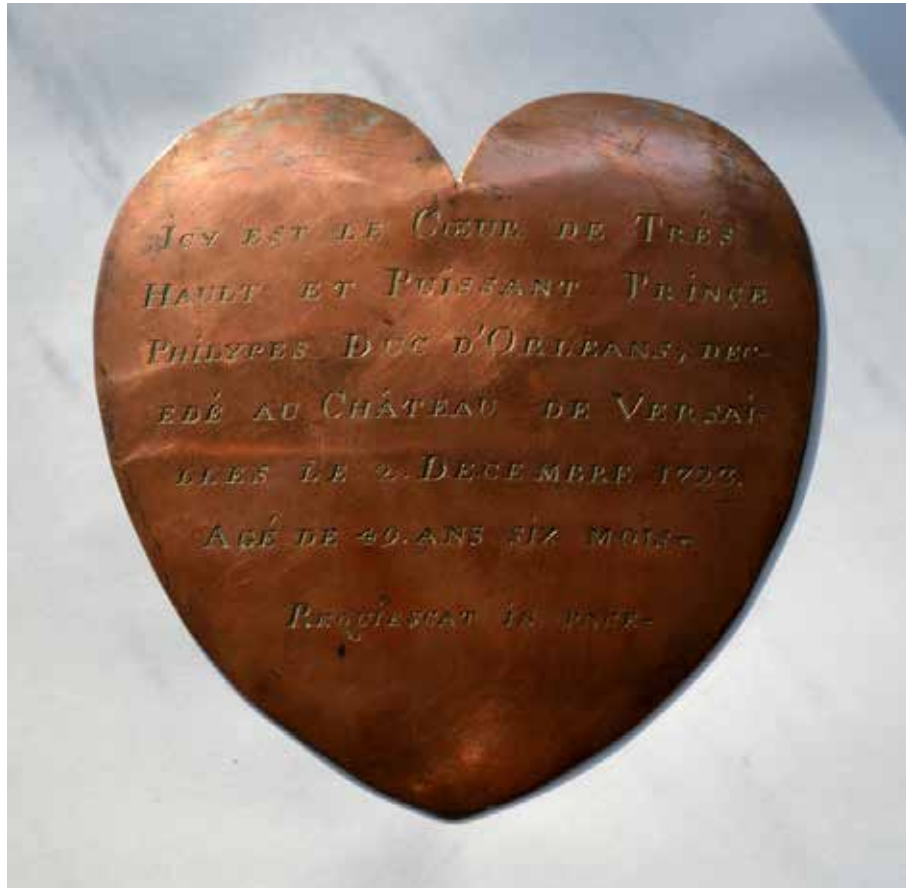 Jcy est le Cœur de Trés
Hault et Puissant Prinçe
Philypes Duc d'Orleans, dec-
edé au Château de Versai-
lles le 2. Decembre 1723.
Agé de 49. ans six mois.
Requiescat in pace-